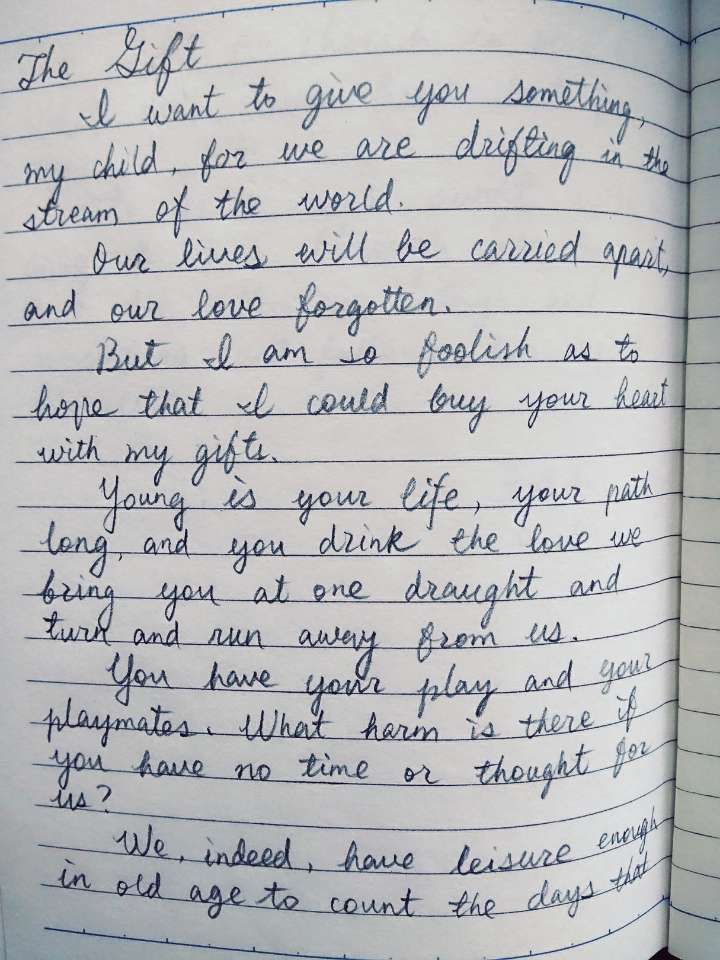 The Gift
I want to give you something,
my child, for we are drifting in the
stream of the world.
Our lives will be carried apart,
and our love forgotten.
But I am so foolish as to
hope that I could buy your heart
with my gifts.
Young is your life, your path
long, and you drink the love we
bring you at one draught and
turn and run away from us.
You have your play and your
playmates. What harm is there if
you have no time or thought for
us?
We, indeed, have leisure enough
in old age to count the days that